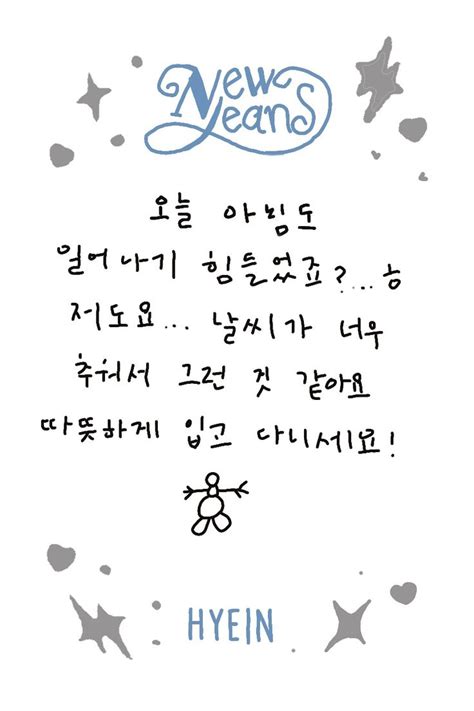 New
Jeans
오늘 아침도
일어나기 힘들었죠?...ㅎ
저도요... 날씨가 너무
추워서 그런 것 같아요
따뜻하게 입고 다니세요!
HYEIN